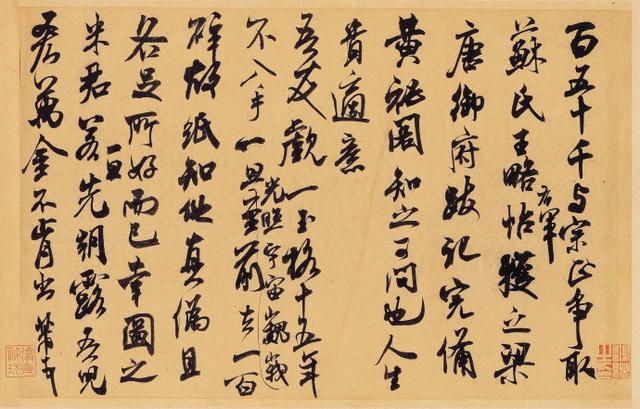 百五十千与宗正爭取
蘇氏王略帖右軍獲之梁
唐御府跋記完備
黃祕閣知之可問也人生
貴適意
吾友觀一玉格十五年
不入手一旦光照宇宙巍峩至前去一百
碎故紙知他真偽且
各足所好而已幸圖之
米君若一旦先朝露吾兒
吝萬金不肯出芾